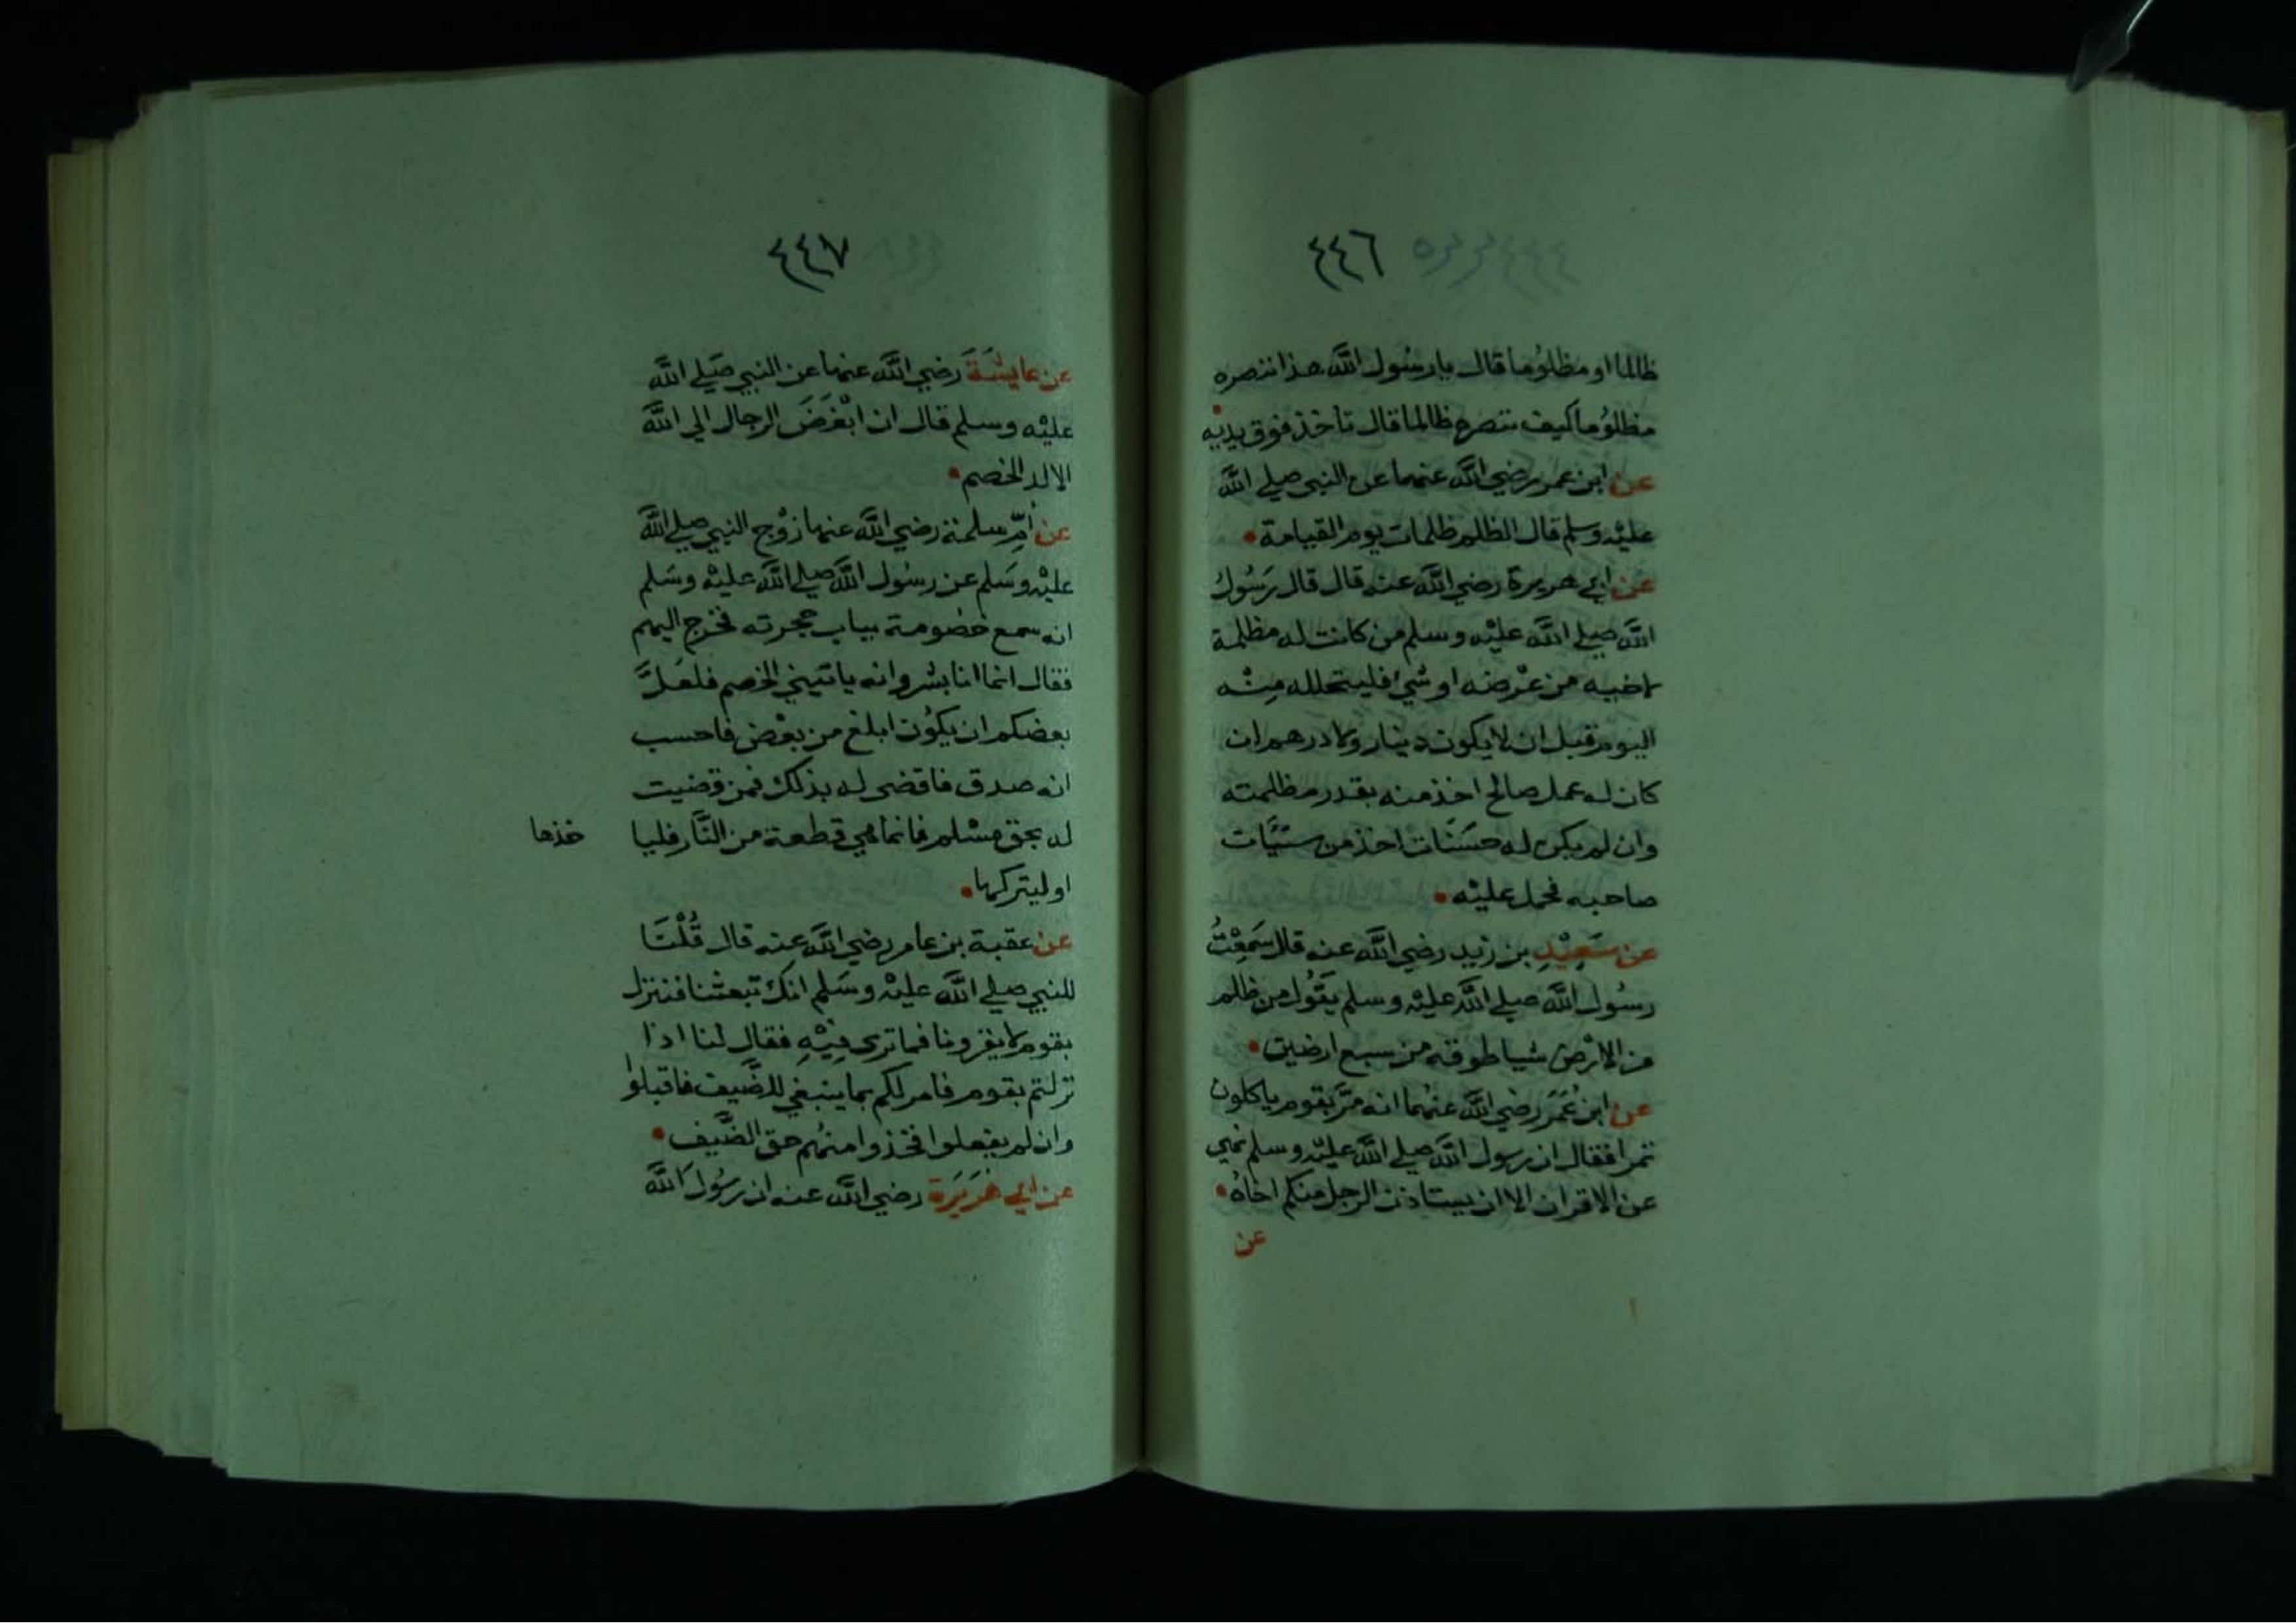 ٤٤٦
ظالما او مظلوُما قال يا رسُول اللَّه هذا ننصره
مظلوُما كيف ننصره ظالما قال تاخذ فوق يديْه
عن ابن عمر رضي اللَّه عنهما عن النبي صلي اللَّه
عليْه وسلم قال الظلم ظلمات يوم القيامة
عن ابي هريرة رضي اللَّه عنه قال قال رَسُولُ
اللَّه صلي اللَّه عليْه وسلم من كانت له مظلمة
لاخيه من عرْضه او شيء فليتحلله مِنْه
اليوم قبل ان لا يكون دينار ولا درهم ان
كان له عمل صالح اخذ منه بقدر مظلمته
وان لم يكن له حسَنَات اخذ من سيَّات
صاحبه فحمل عليْه
عن سَعِيْدِ بن زيد رضي اللَّه عنه قال سَمِعْتُ
رسُول اللَّه صلي اللَّه عليْه وسلم يقُول من ظلم
من الارْض شيا طوقه من سبع ارضين
عن ابن عُمَرَ رضي اللَّه عنهُما انه مَرَّ بقوم ياكلون
تمرا فقال ان رسول اللَّه صلي اللَّه عليْه وسلم نهي
عن الاقران الا ان يستاذن الرجل منكم اخاهُ
عن
٤٤٧
عن عايشَةَ رضي اللَّه عنها عن النبي صَلي اللَّه
عليْه وسلم قال ان ابْغَضَ الرجال الي اللَّه
الالد الخصم
عن اُمِّ سلمة رضي اللَّه عنها زوْج النبي صلي اللَّه
عليْه وسَلم عن رسُول اللَّه صلي اللَّه عليْه وسَلم
انه سمع خصُومة بباب حجرته فخرج اليهم
فقال انما انا بشر وانه ياتيني الخصم فلعَلَّ
بعضكم ان يكوُن ابلغ من بعْض فاحسب
انه صدق فاقضي له بذلك فمن قضيت
له بحق مسْلم فانما هي قطعة من النَّار فليا خذها
او ليتركها
عن عقبة بن عامر رضي اللَّه عنه قال قُلْنَا
للنبي صلي اللَّه عليْه وسَلم انك تبعثنا فننزل
بقوم لا يقرونا فما تري فِيْهِ فقال لنا اذا
نزلتم بقوم فامر لكم بما ينبغي للضَّيف فاقبلوا
وان لم يفعلوا فخذوا منهُم حق الضَّيف
عن ابي هُرَيَرَة رضي اللَّه عنه ان رسُولَ اللَّه